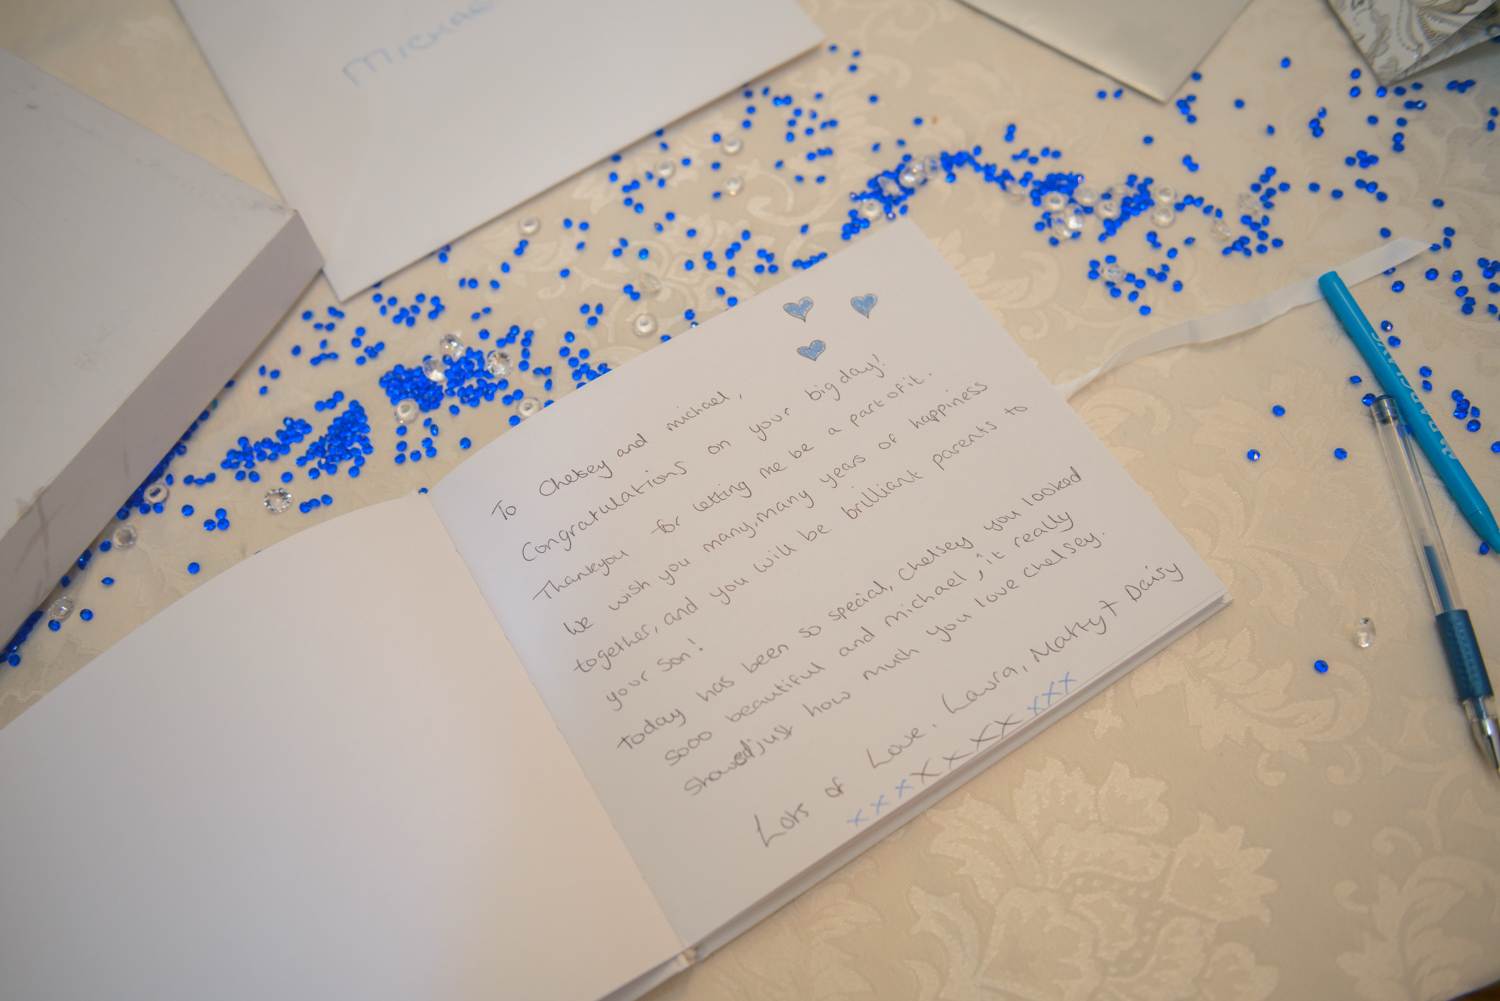 MICHAE
To Chelsey and michael,
Congratulations on your big day!
Thankyou for letting me be a part of it.
We wish you many, many years of happiness
together, and you will be brilliant parents to
your son!
Today has been so special, Chelsey you looked
sooo beautiful and michael, it really
showed just how much you love chelsey.
Lots of Love, Laura, Matty + Daisy
xxxxxxxxxx